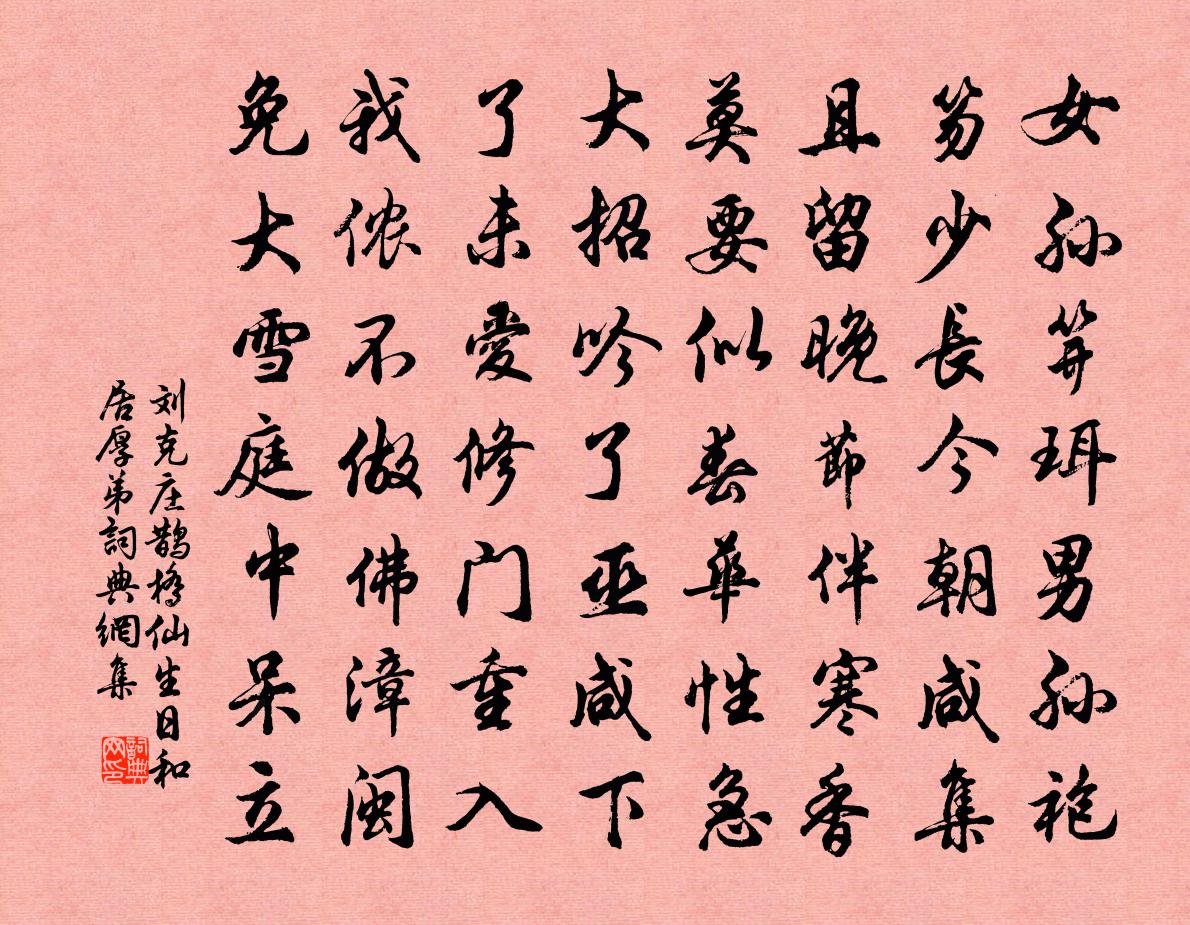 女孙笄珥男孙袍
笏少長今朝咸集
且留晚節伴寒香
莫要似春華性急
大招吟了巫咸下
了未愛修门重入
我侬不做佛漳闽
免大雪庭中呆立
刘克庄鹊橋仙生日和
居厚弟詞典網集
詞典网印